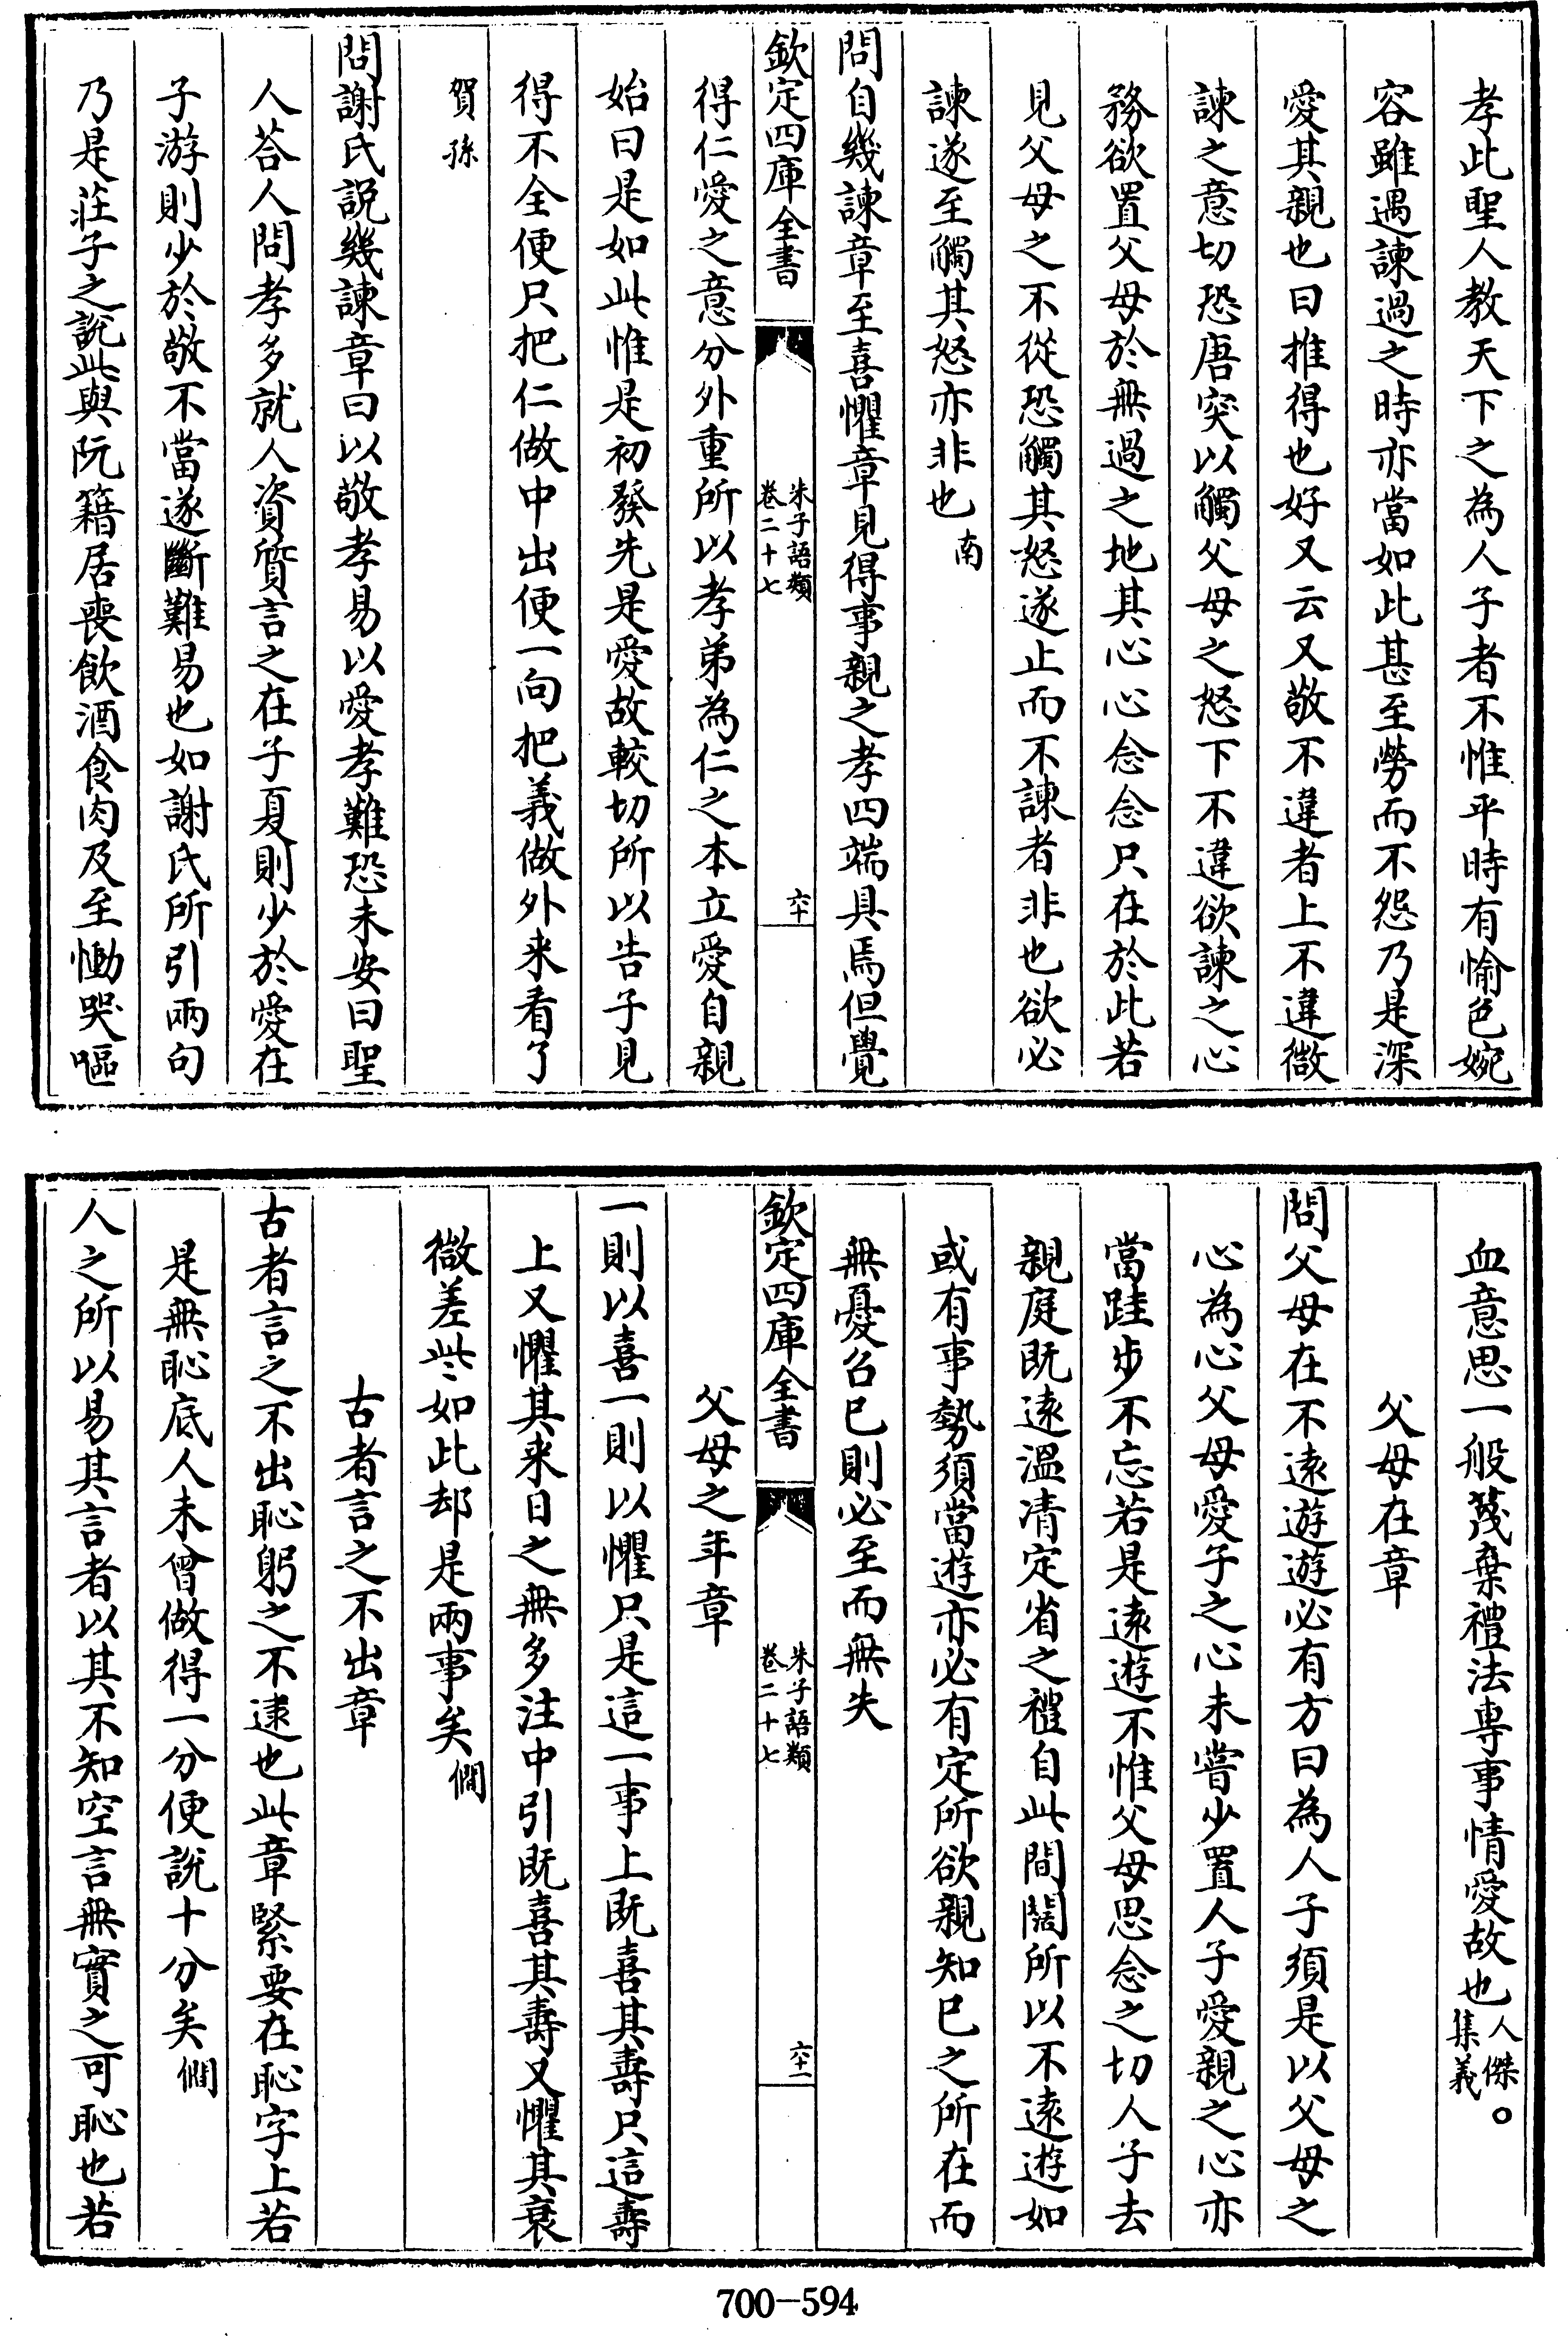 孝此聖人教天下之為人子者不惟平時有愉色婉
容雖遇諫過之時亦當如此甚至勞而不怨乃是深
愛其親也曰推得也好又云又敬不違者上不違微
諫之意切恐唐突以觸父母之怒下不違欲諫之心
務欲置父母於無過之地其心心念念只在於此若
見父母之不從恐觸其怒遂止而不諫者非也欲必
諫遂至觸其怒亦非也南
問自幾諫章至喜懼章見得事親之孝四端具焉但覺
欽定四庫全書 朱子語類 卷二十七 六十
得仁愛之意分外重所以孝弟為仁之本立愛自親
始曰是如此惟是初發先是愛故較切所以告子見
得不全便只把仁做中出便一向把義做外来看了
賀孫
問謝氏説幾諫章曰以敬孝易以愛孝難恐未安曰聖
人荅人問孝多就人資質言之在子夏則少於愛在
子游則少於敬不當遂斷難易也如謝氏所引兩句
乃是荘子之說此與阮籍居喪飲酒食肉及至慟哭嘔
血意思一般蔑棄禮法専事情愛故也人傑○集義
父母在章
問父母在不逺遊遊必有方曰為人子須是以父母之
心為心父母愛子之心未嘗少置人子愛親之心亦
當跬步不忘若是逺遊不惟父母思念之切人子去
親庭既逺溫凊定省之禮自此間闊所以不逺遊如
或有事勢須當遊亦必有定所欲親知已之所在而
無憂召已則必至而無失
欽定四庫全書 朱子語類 卷二十七 六十一
父母之年章
一則以喜一則以懼只是這一事上既喜其壽只這壽
上又懼其来日之無多注中引既喜其壽又懼其衰
微差些如此却是兩事矣僩
古者言之不出章
古者言之不出恥躬之不逮也此章緊要在恥字上若
是無恥底人未曾做得一分便說十分矣僩
人之所以易其言者以其不知空言無實之可恥也若
700-594